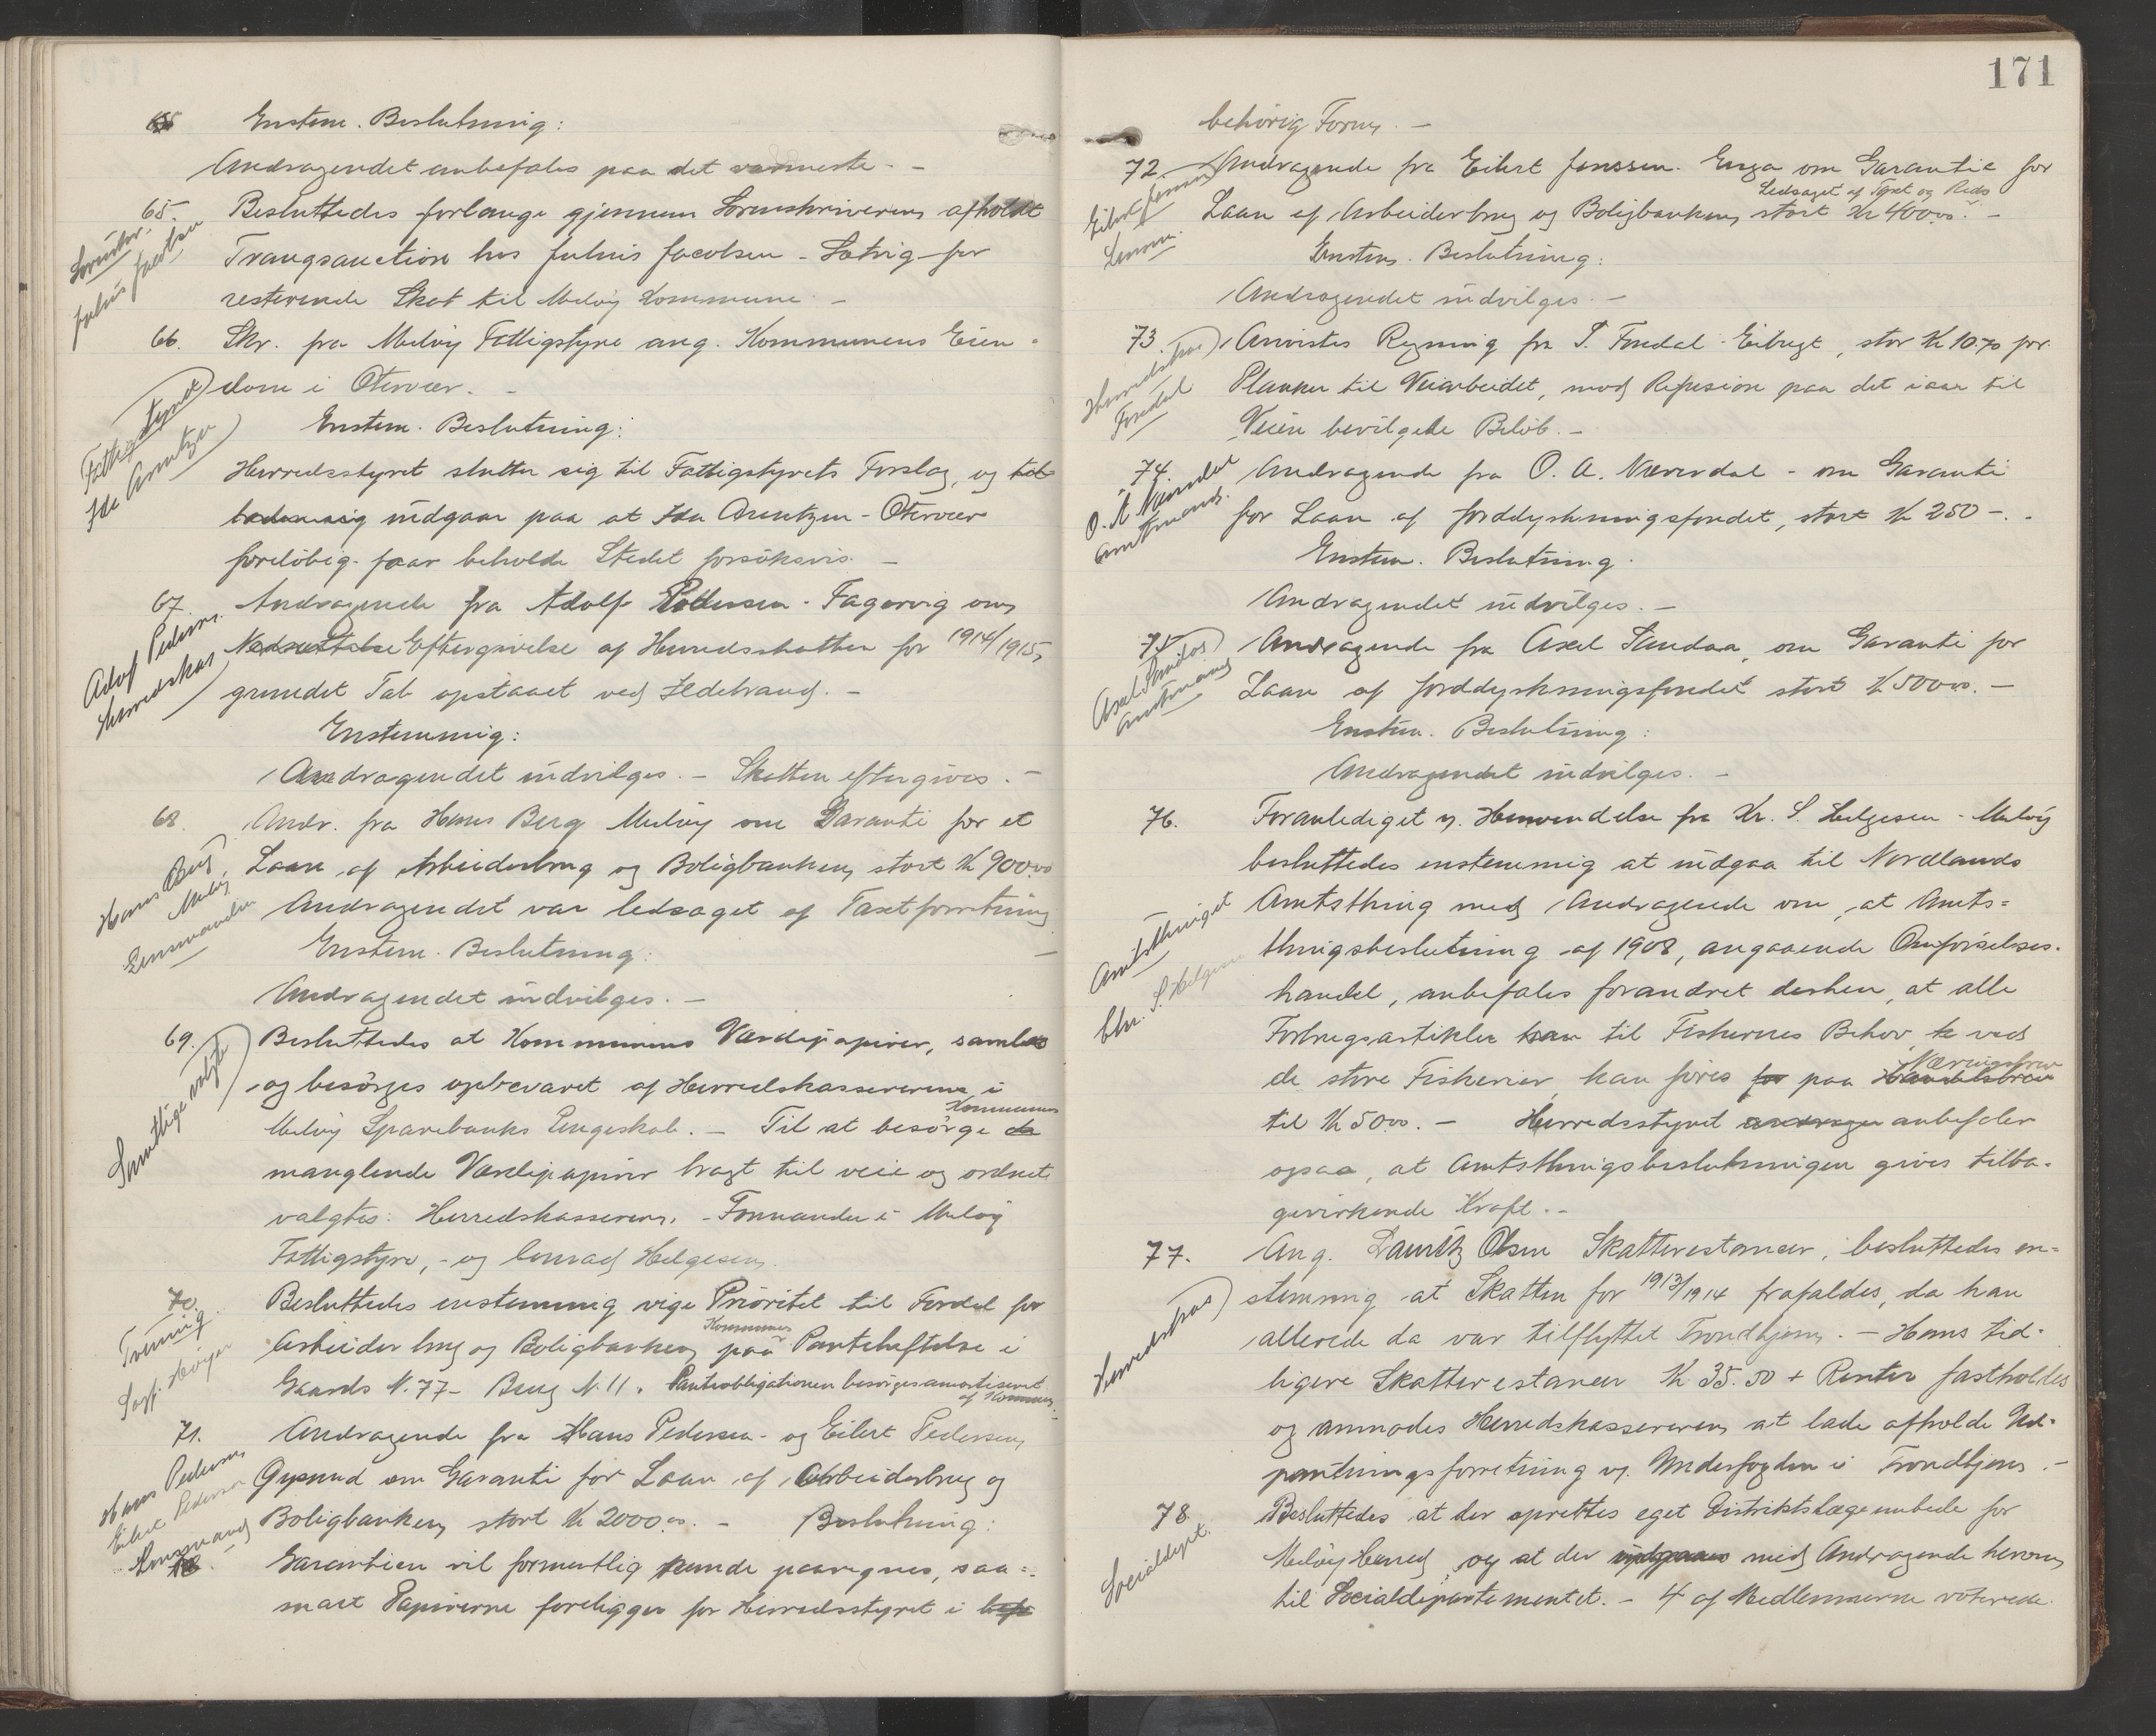 171
Enstem. Beslutning:
Andragendet anbefales paa det varmeste. -
65. Besluttedes forlange gjennem Sorenskriveren afholdt
Sorenskr.
Julius Jacobsen
Tvangsauction hos Julius Jacobsen - Sætvig for
resterende Skat til Meløy Kommune. -
66. Skr. fra Meløy Fattigstyre ang. Kommunens Eien-
dom i Otervær. -
Fattigstyret
Ida Arentzen
Enstem. Beslutning:
Herredsstyret slutter sig til Fattigstyrets Forslag, og
indgaar paa at Ida Arentzen - Otervær
foreløbig faar beholde Stedet forsøksvis. -
67. Andragende fra Adolf Pedersen - Fagervig om
Adolf Pedersen
Herredskas
Nedsættelse Eftergivelse af Herredsskatten for 1914/1915,
grundet Tab opstaaet ved Ildebrand. -
Enstemmig:
Andragendet indvilges. - Skatten eftergives. -
68. Andr. fra Hans Berg Meløy om Garanti for et
Hans Berg
Meløy
Lensmanden
Laan af Arbeiderbrug og Boligbanken, stort Kr 900.00
Andragendet var ledsaget af Taxtforretning
Enstem. Beslutning: -
Andragendet indvilges. -
69. Besluttedes at Kommunens Værdipapirer, samles
Samtlige valgte
og besørges opbevaret af Herredskassereren i
Meløy Sparebanks Pengeskab. - Til at besørge de Kommunens
manglende Værdipapirer bragt til veie og ordnet
valgtes: Herredskassereren, - Formanden i Meløy
Fattigstyre, - og Conrad Helgesen.
70. Besluttedes enstemmig vige Prioritet til Fordel for
Arbeider brug og Boligbanken paa Kommunens Panteheftelse i
Gaards N. 77 - Brug N. 11. Panteobligationen besørges amortiseret
af Kommunen. -
71. Andragende fra Hans Pedersen - og Eilert Pedersen
Hans Pedersen
Eilert Pedersen
Lensmand
om Garanti for Laan af Arbeiderbrug og
Boligbanken, stort Kr 2000.00. - Beslutning:
Garantien vil formentlig kunde paaregnes, saa-
snart Papirerne foreligger for Herredsstyret i
behørig Form. -
72. Andragende fra Eilert Jenssen. Enga om Garanti for
Eilert Jenssen
Lensm.
Laan af Arbeiderbrug og Boligbanken, stort Kr 400.00. - Ledsaget af Taxt og
Enstem. Beslutning:
Andragendet indvilges. -
73 Anvistes Regning fra P. Fondal - Eibugt, stor Kr 10.70 for
Herredskas
Fondal
Planker til Veiarbeidet, mod Refusion paa det iaar til
Veien bevilgede Beløb. -
74. Andragende fra O. A. Næverdal - om Garanti
O. A. Næverdal
Amtmand.
for Laan af Jorddyrkningsfondet, stort Kr 250 -. -
Enstem. Beslutning.
Andragendet indvilges. -
75 Andragende fra Axel Sandaa, om Garanti for
Axel Sandaa
Amtmand
Laan af Jorddyrkningsfondet stort Kr 500.00. -
Enstem. Beslutning:
Andragendet indvilges. -
76. Foranlediget v. Henvendelse fra Kr. S. Helgesen - Meløy
besluttedes enstemmig at indgaa til Nordlands
Amtsthing med Andragende om, at Amts-
Amtsthinget
Chr. S. Helgesen
thingsbeslutning af 1908, angaaende Omførselses-
handel, anbefales forandret derhen, at alle
Forbrugsartikler til Fiskernes Behov ved
de store Fiskerier, kan føres for paa Handelsbrev Næringsbrev
til Kr 50.00. - Herredsstyret andrager anbefaler
ogsaa, at Amtsthingsbeslutningen gives tilba-
gevirkende Kraft. -
77. Ang. Lauritz Olsen Skatterestancer, besluttedes en-
Herredskas
stemmig at Skatten for 1913/1914 frafaldes, da han
allerede da var tilflyttet Trondhjem. - Hans tid-
ligere Skatterestancer Kr. 35.50 + Renter fastholdes
og anmodes Herredskassereren at lade afholde Ud-
pantningsforretning v. Underfogden i Trondhjem. -
78. Besluttedes at der oprettes eget Distriktslægeembede for
Socialdept.
Meløy Herred, og at der indgaaes med Andragende herom
til Socialdepartementet. - 4 af Medlemmerne voterede